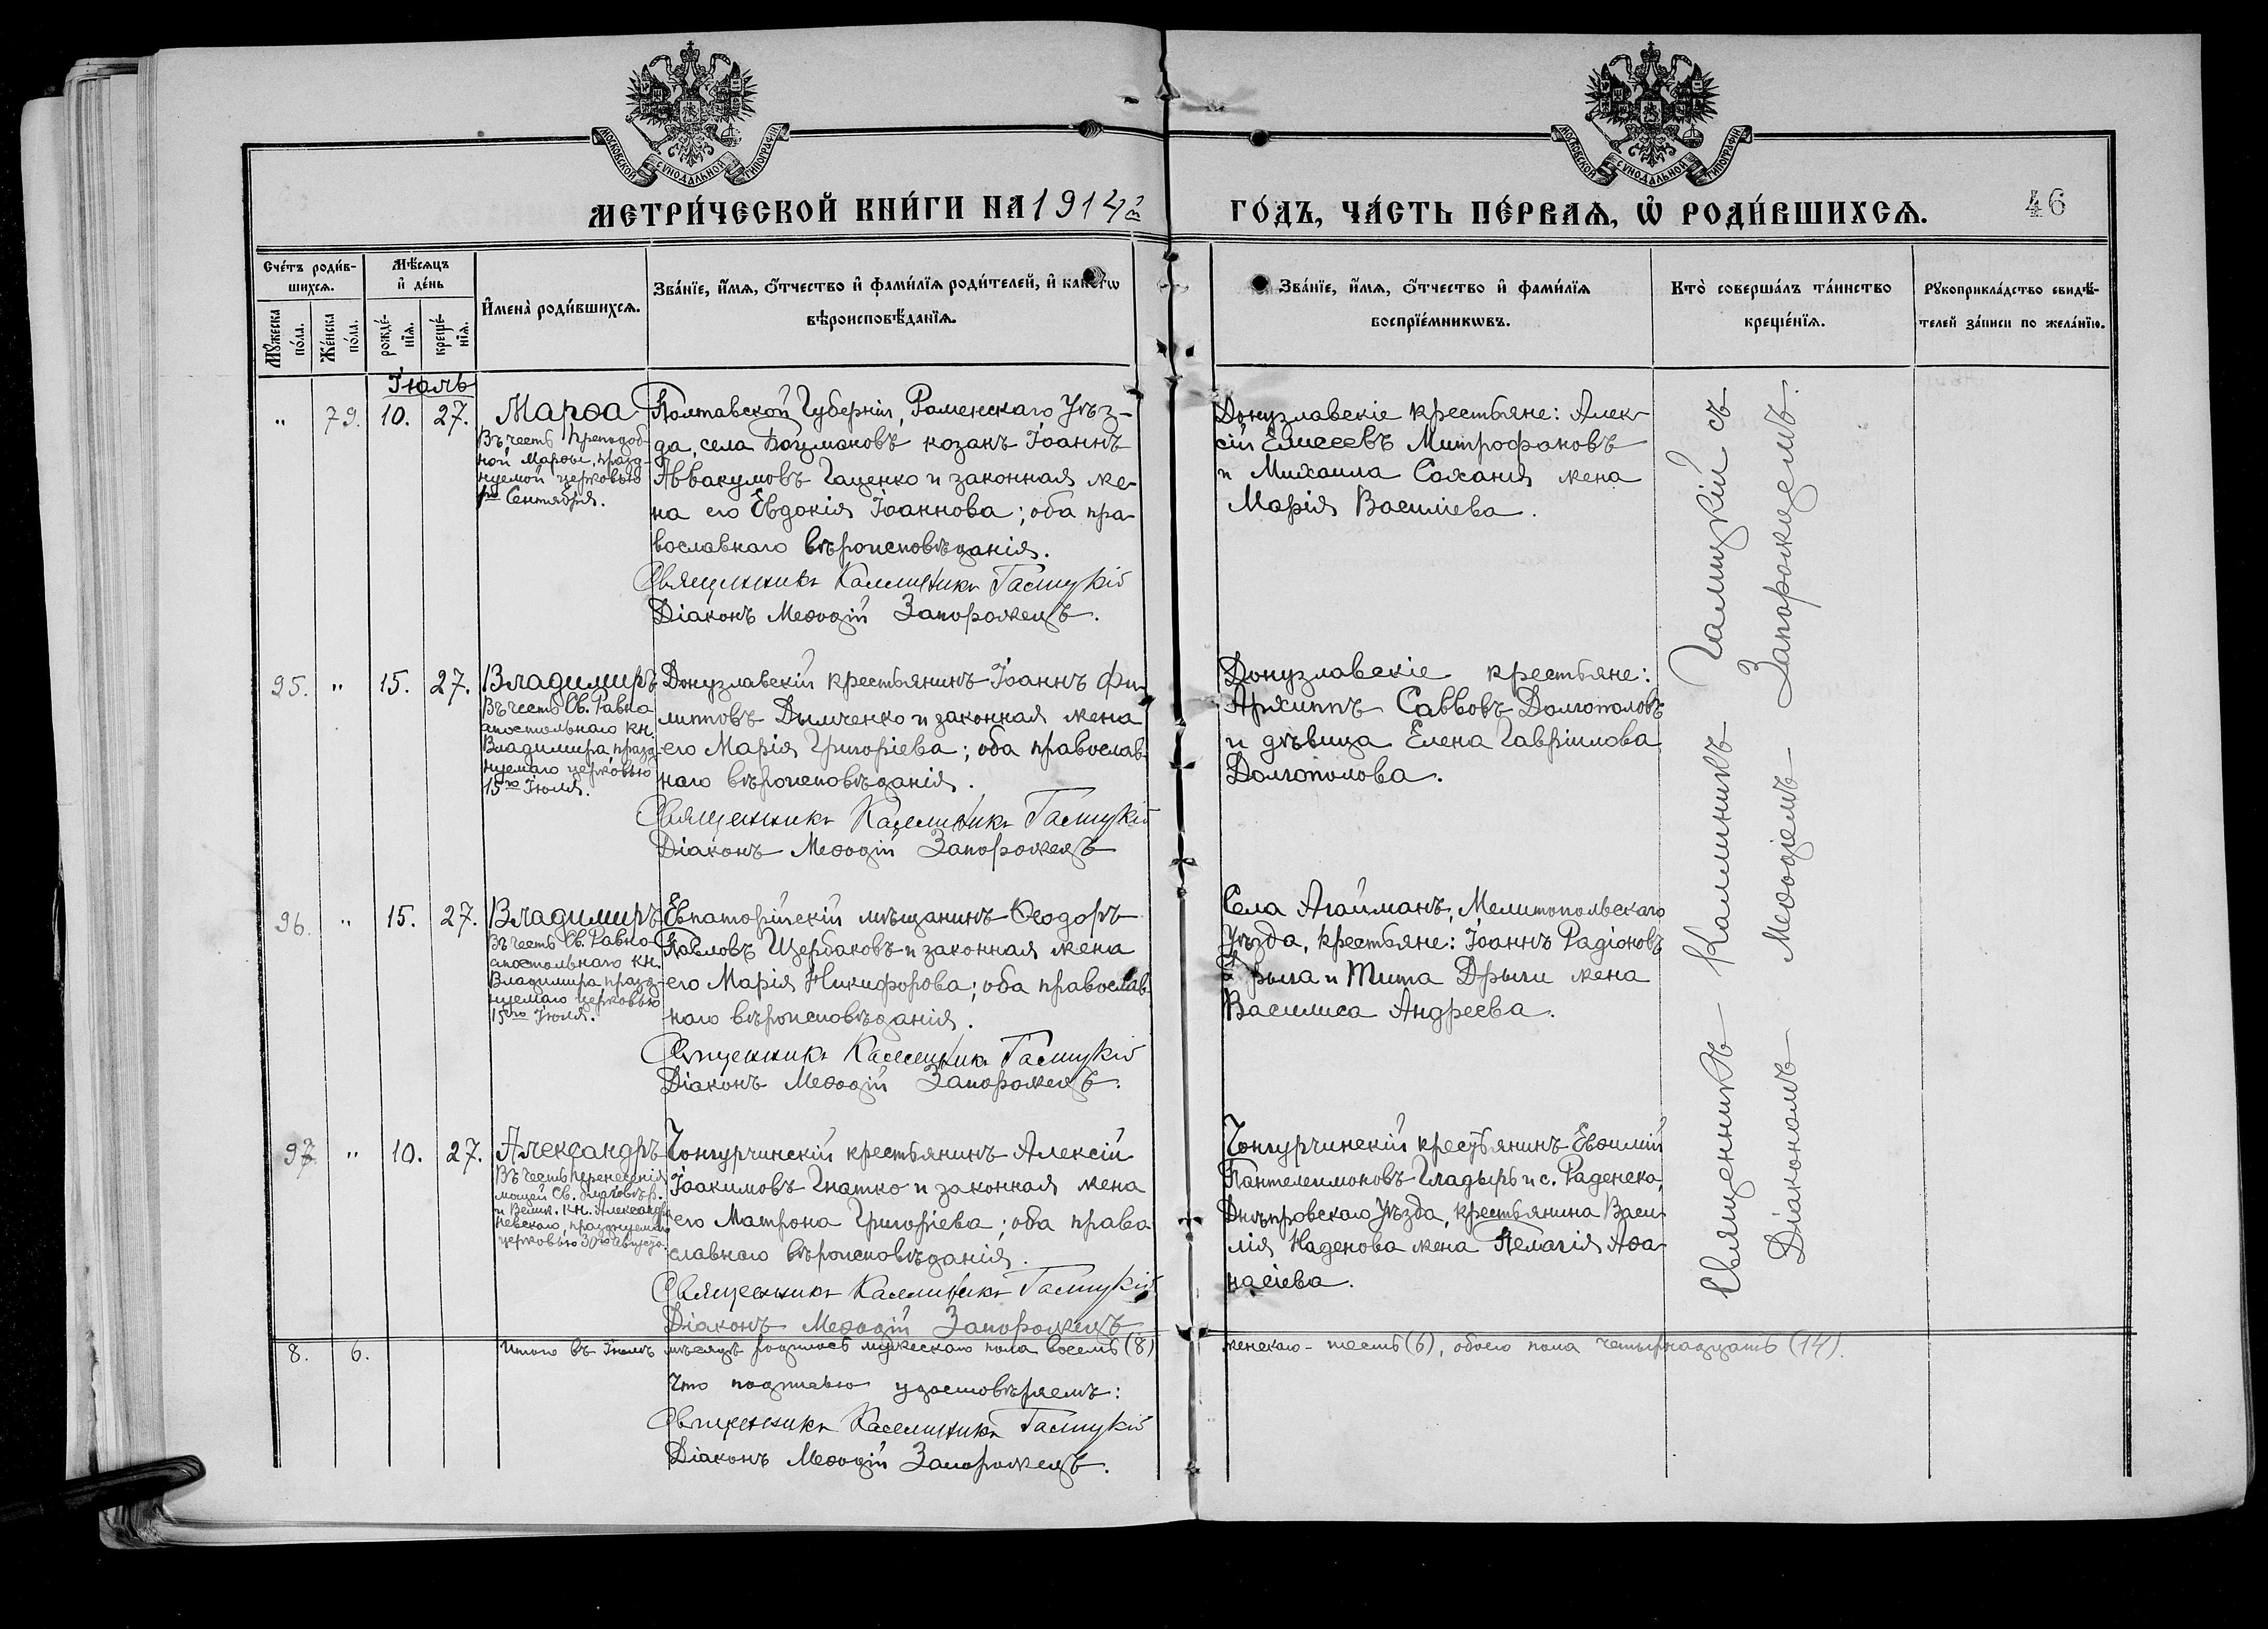 МОСКОВСКОЙ СУНОДАЛЬНОЙ ТИПОГРАФІИ
МОСКОВСКОЙ СУНОДАЛЬНОЙ ТИПОГРАФІИ
МЕТРИ́ЧЕСКОЙ КНИ́ГИ НА 1914й
ГО́ДЪ, ЧА́СТЬ ПЕ́РВАѦ, Ѡ҆ РОДИ́ВШИХСѦ.
46
Сче́тъ роди́в-
шихсѧ.
Мꙋ́жеска
по́ла.
Же́нска
по́ла.
Мѣ́сѧцъ
и҆ де́нь
рожде́-
нїѧ.
креще́-
нїѧ.
И҆мена̀ роди́вшихсѧ.
Зва́нїе, и҆́мѧ, ѻ҆́тчество и҆ фами́лїѧ роди́телей, и҆ како́гѡ
вѣроисповѣ́данїѧ.
Зва́нїе, и҆́мѧ, ѻ҆́тчество и҆ фами́лїѧ
воспрїе́мникѡвъ.
Кто̀ соверша́лъ та́инство
креще́нїѧ.
Рꙋкоприкла́дство свидѣ́-
телей за́писи по жела́нїю.
Іюль
" 79. 10. 27. Марѳа
Въ честь преподоб-
ной Марѳы, празд-
нуемой церковью
1го Сентября.
Полтавской Губерніи, Роменскаго Уѣз-
да, села козакъ Іоаннъ
Аввакумовъ Гаценко и законная же-
на его Евдокія Іоаннова; оба пра-
вославнаго вѣроисповѣданія.
Священникъ Каллиникъ Галицкій
Діаконъ Меѳодій Запорожецъ.
Донузлавскіе крестьяне: Алек-
сій Елисеевъ Митрофановъ
и Михаила Саханя жена
Марія Василіева.
95. " 15. 27. Владиміръ
Въ честь Св. Равно-
апостольнаго кн.
Владиміра, празд-
нуемаго церковью
15го Іюля.
Донузлавскій крестьянинъ Іоаннъ Фи-
липповъ Дымченко и законная жена
его Марія Григоріева; оба православ-
наго вѣроисповѣданія.
Священникъ Каллиникъ Галицкій
Діаконъ Меѳодій Запорожецъ
Донузлавскіе крестьяне:
Архиппъ Саввовъ Долгополовъ
и дѣвица Елена Гавріилова
Долгополова.
96. " 15. 27. Владиміръ
Въ честь Св. Равно-
апостольнаго кн.
Владиміра, празд-
нуемаго церковью
15го Іюля.
Евпаторійскій мѣщанинъ Ѳеодоръ
Павловъ Щербаковъ и законная жена
его Марія Никифорова; оба православ-
наго вѣроисповѣданія.
Священникъ Каллиникъ Галицкій
Діаконъ Меѳодій Запорожецъ.
Села Агайманъ, Мелитопольскаго
Уѣзда, крестьяне: Іоаннъ Радіоновъ
Дрыга и Тита Дрыги жена
Василиса Андреева.
97. " 10. 27. Александръ
Въ честь перенесенія
мощей Св. Благовѣр.
и Велик. кн. Александра
Невскаго, празднуемаго
церковью 30го Августа.
Чонгурчинскій крестьянинъ Алексій
Іоакимовъ Гнатко и законная жена
его Матрона Григоріева; оба право-
славнаго вѣроисповѣданія.
Священникъ Каллиникъ Галицкій
Діаконъ Меѳодій Запорожецъ
Чонгурчинскій крестьянинъ Евѳимій
Пантелеимоновъ Гладырь и с. Раденска,
Днѣпровскаго Уѣзда, крестьянина Васи-
лія Наденова жена Пелагія Аѳа-
насіева.
Священникъ Каллиникъ Галицкій съ
Діакономъ Меѳодіемъ Запорожцемъ.
8. 6. Итого въ Іюлѣ мѣсяцѣ родилось мужескаго пола восемь (8)
женскаго - шесть (6), обоего пола четырнадцать (14).
Что подписью удостовѣряемъ:
Священникъ Каллиникъ Галицкій
Діаконъ Меѳодій Запорожецъ.